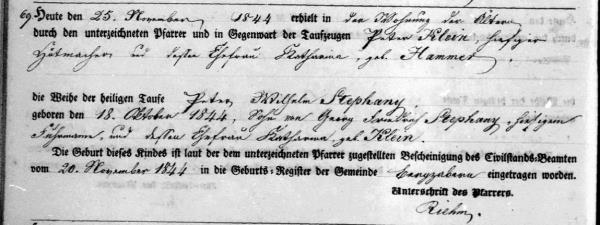 69. Heute den 25. November 1844 erhielt in der Wohnung der Ältern
durch den unterzeichneten Pfarrer und in Gegenwart der Taufzeugen Peter Klein hiesiger
Hutmacher und dessen Ehefrau Katharina, geb. Hammer
die Weihe der heiligen Taufe Peter Wilhelm Stephany,
geboren den 18. Oktober 1844, Sohn von Georg Stephany, hiesigem
und dessen Ehefrau Katharina, geb. Klein.
Die Geburt dieses Kindes ist laut der dem unterzeichneten Pfarrer zugestellten Bescheinigung des Civilstands-Beamten
vom 20. November 1844 in die Geburts-Register der Gemeinde Bergzabern eingetragen worden.
Unterschrift des Pfarrers.
Riehm.